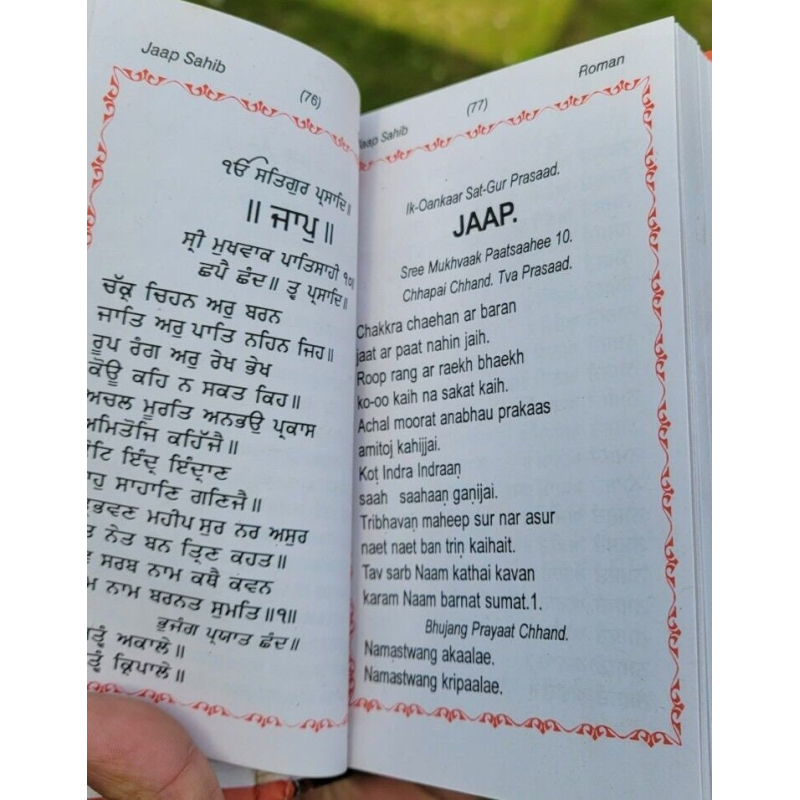 Jaap Sahib
(76)
ੴ ਸਤਿਗੁਰ ਪ੍ਰਸਾਦਿ॥
॥ ਜਾਪੁ ॥
ਸ੍ਰੀ ਮੁਖਵਾਕ ਪਾਤਿਸਾਹੀ ੧੦॥
ਛਪੈ ਛੰਦ॥ ਤ੍ਵ ਪ੍ਰਸਾਦਿ॥
ਚੱਕ੍ਰ ਚਿਹਨ ਅਰੁ ਬਰਨ
ਜਾਤਿ ਅਰੁ ਪਾਤਿ ਨਹਿਨ ਜਿਹ॥
ਰੂਪ ਰੰਗ ਅਰੁ ਰੇਖ ਭੇਖ
ਕੋਊ ਕਹਿ ਨ ਸਕਤ ਕਿਹ॥
ਅਚਲ ਮੂਰਤਿ ਅਨਭਉ ਪ੍ਰਕਾਸ
ਅਮਿਤੋਜਿ ਕਹਿੱਜੈ॥
ਇੰਦ੍ਰ ਇੰਦ੍ਰਾਣ
ਸਾਹਾਣਿ ਗਣਿਜੈ॥
ਮਹੀਪ ਸੁਰ ਨਰ ਅਸੁਰ
ਨੇਤ ਬਨ ਤ੍ਰਿਣ ਕਹਤ॥
ਸਰਬ ਨਾਮ ਕਥੈ ਕਵਨ
ਨਾਮ ਬਰਨਤ ਸੁਮਤਿ॥੧॥
ਭੁਜੰਗ ਪ੍ਰਯਾਤ ਛੰਦ॥
ਅਕਾਲੇ॥
ਕ੍ਰਿਪਾਲੇ॥
Jaap Sahib
(77)
Roman
Ik-Oankaar Sat-Gur Prasaad.
JAAP.
Sree Mukhvaak Paatsaahee 10.
Chhapai Chhand. Tva Prasaad.
Chakkra chaehan ar baran
jaat ar paat nahin jaih.
Roop rang ar raekh bhaekh
ko-oo kaih na sakat kaih.
Achal moorat anabhau prakaas
amitoj kahijjai.
Koṭ Indra Indraaṇ
saah saahaaṇ gaṇijai.
Tribhavaṇ maheep sur nar asur
naet naet ban triṇ kaihait.
Tav sarb Naam kathai kavan
karam Naam barnat sumat.1.
Bhujang Prayaat Chhand.
Namastwang akaalae.
Namastwang kripaalae.